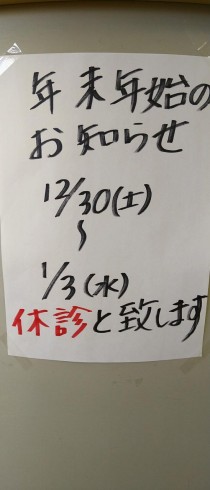 年末年始の
お知らせ
12/30(土)
〜
1/3(水)
休診と致します